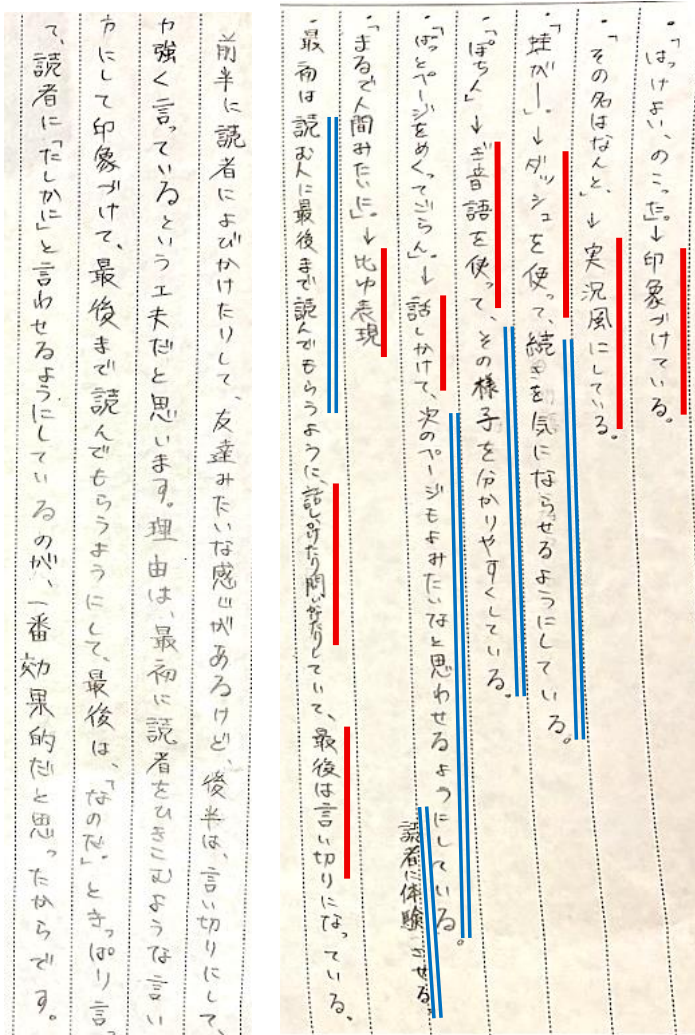 ・「はっけよい、のこった。」→印象づけている。
・「その名はなんと、」→実況風にしている。
・「蛙が―。」→ダッシュを使って、続きを気にならせるようにしている。
・「ぽちん」→ぎ音語を使って、その様子を分かりやすくしている。
・「ぱっとページをめくってごらん。」→話しかけて、次のページもよみたいなと思わせるようにしている。
読者に体験させる。
・「まるで人間みたいに」。→比ゆ表現
・最初は読む人に最後まで読んでもらうように、話しかけたり問いかけたりしていて、最後は言い切りになっている。
前半に読者によびかけたりして、友達みたいな感じがあるけど、後半は、言い切りにして、
力強く言っているという工夫だと思います。理由は、最初に読者をひきこむような言い
方にして印象づけて、最後まで読んでもらうようにして、最後は、「なのだ。」ときっぱり言っ
て、読者に「たしかに」と言わせるようにしているのが、一番効果的だと思ったからです。